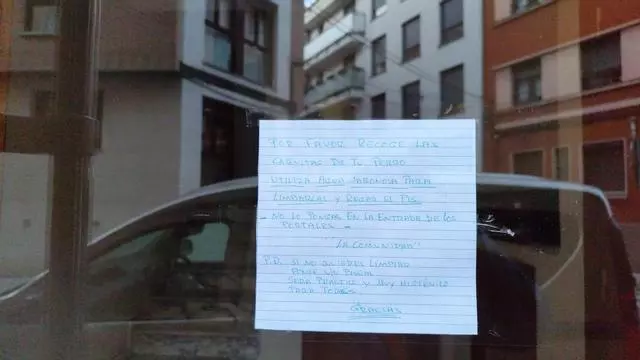 POR FAVOR RECOGE LAS
CAQUITAS DE TU PERRO
UTILIZA AGUA JABONOSA PARA
LIMPIARLAS Y RECOGE EL PIS
- NO LO PONGAS EN LA ENTRADA DE LOS
PORTALES -
"LA COMUNIDAD"
P.D. SI NO QUIERES LIMPIAR
PONLE UN PAÑAL
SERA PRACTICO Y MUY HIGIÉNICO
PARA TODOS
GRACIAS